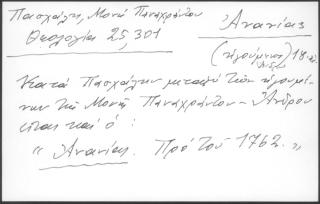 Πασχάλη, Μονή Παναχράντου
Θεολογία 25, 301
Ἀνανίας
(ἡγούμενος) 18
Κατά Πασχάλην μεταξύ τῶν ἡγουμέ-
νων τῆς Μονῆς Παναχράντου - Ἄνδρου
εἶναι καί ὁ:
" Ἀνανίας. Πρό τοῦ 1762. "